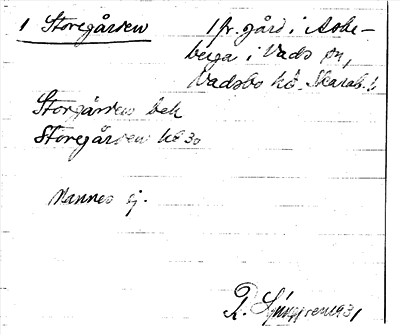 1 Storegården
1 fr. gård i Asbe-
berga i Vads sn,
Vadsbo hd. Skarab. l.
Storgården bek
Storegården kb 30
Nannes ej.
R. Ljunggren 1931